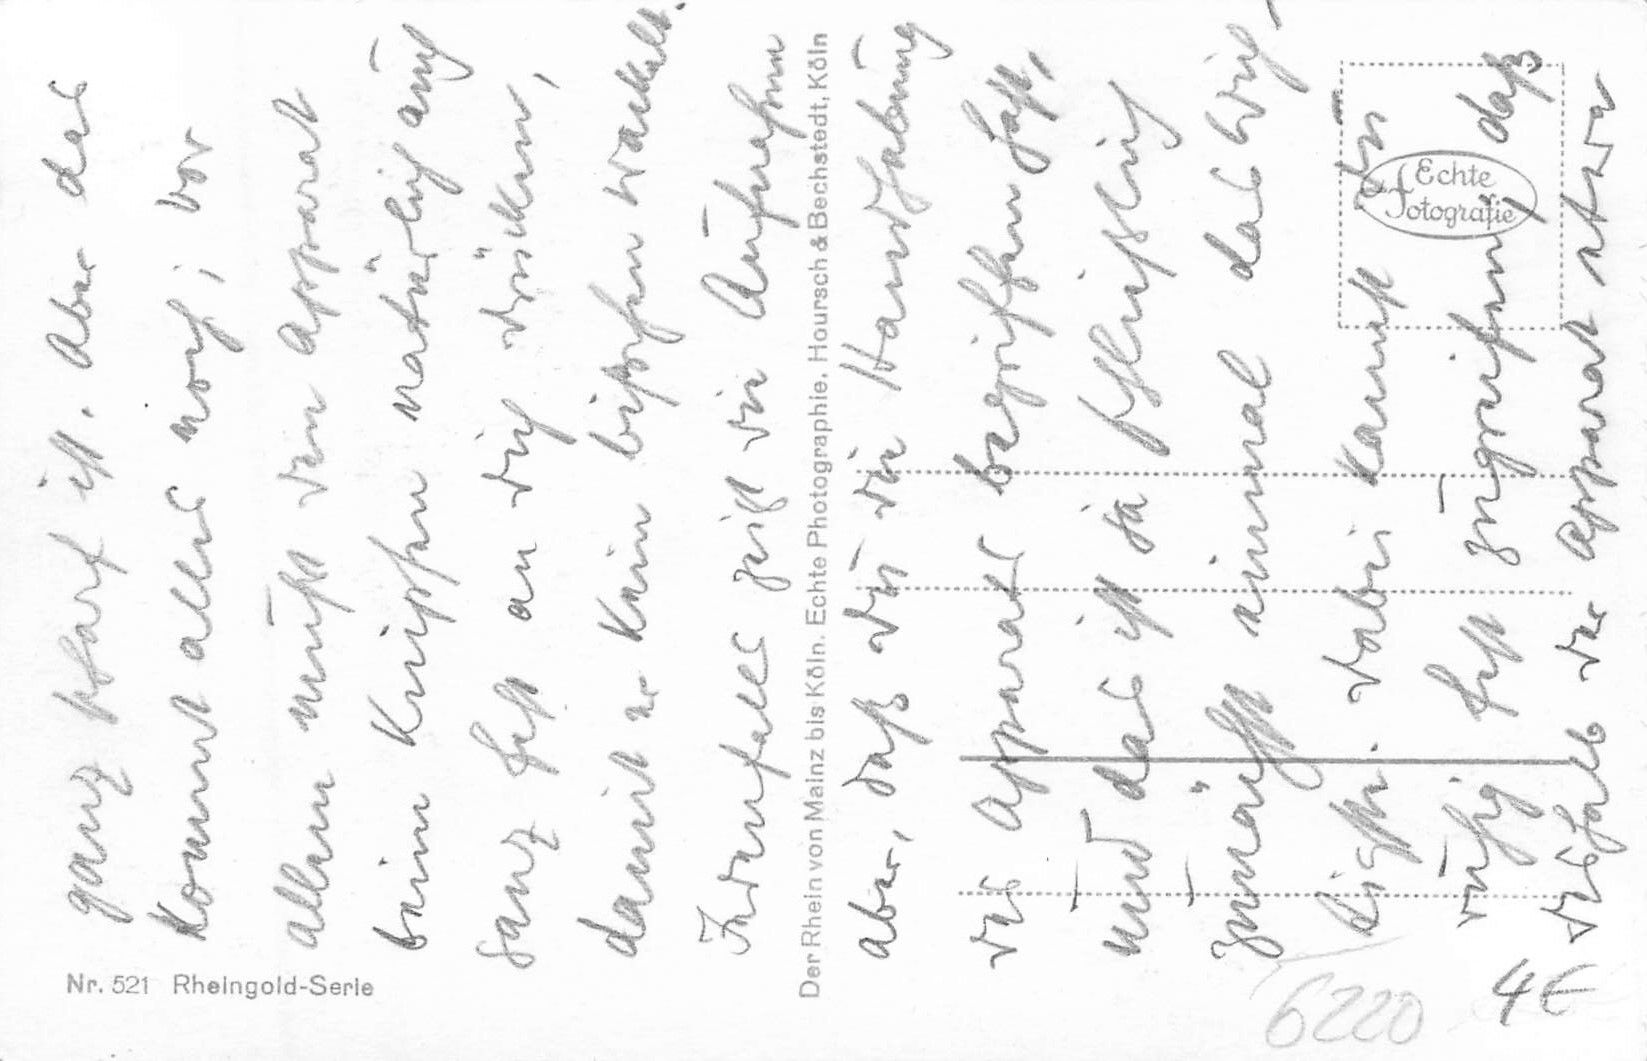 ganz scharf ist. Aber das
kommt alles noch; vor
allem mußt den Apparat
beim Knipsen natürlich auch
ganz fest an dich drücken,
damit er kein bißchen wackelt.
Jedenfalls zeigt die Aufnahme
aber, daß du die Handhabung
des Apparats begriffen hast,
und das ist ja schließlich
zunächst einmal das Wich-
tigste. Dabei kannst du
ruhig fest zugreifen, daß
deshalb der Apparat etwa
Der Rhein von Mainz bis Köln. Echte Photographie. Hoursch & Bechstedt, Köln
Echte
Fotografie
Nr. 521 Rheingold-Serie
6220
4€